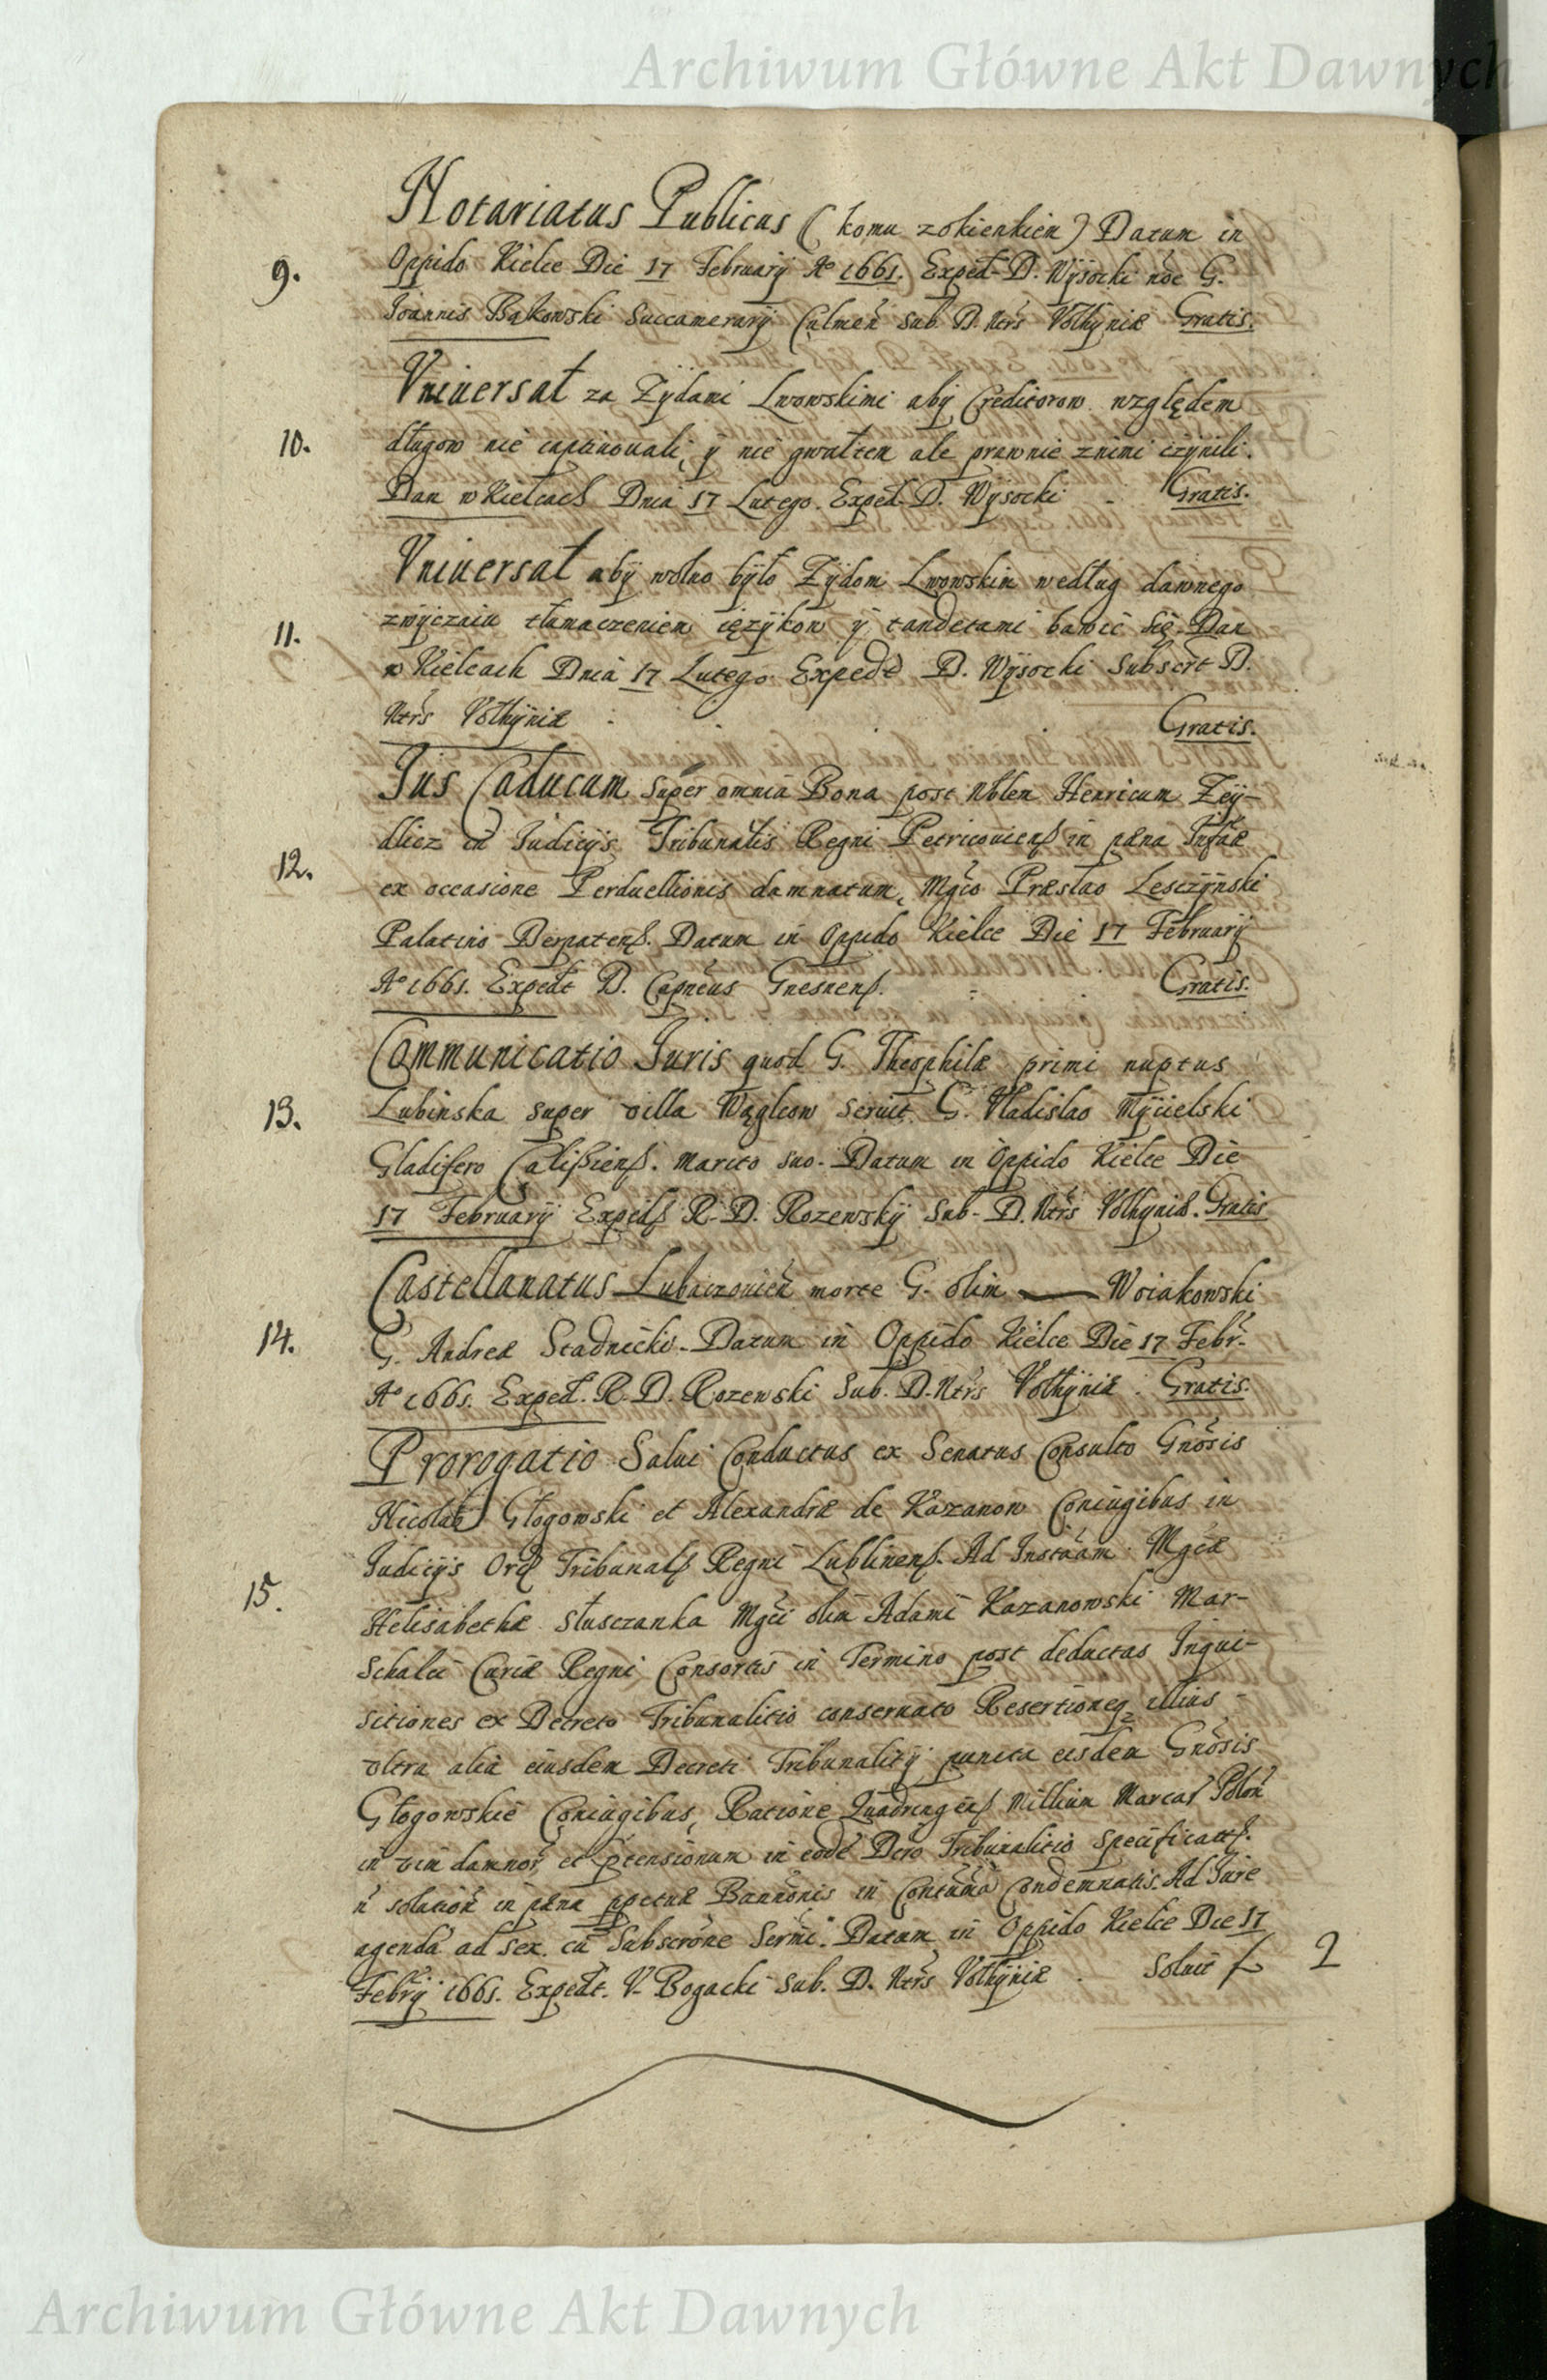 Archiwum Główne Akt Dawnych
Notariatus Publicus ( komu z okienkiem ) Datum in
9. Oppido Kielce Die 17 Februarij Ao 1661. Exped. D. Wysocki nõe G.
Joannis Bąkowski Succamerarij Culmen̄ sub. D. Ntr̃s Volhyniæ Gratis.
Vniuersał za Zydami Lwowskimi aby Creditorow względem
10. długow nie captiuouali, ÿ nie gwałtem ale prawnie z nimi czynili.
Dan w Kielcach Dnia 17 Lutego. Exped. D. Wysocki - Gratis.
Vniuersał aby wolno było Zydom Lwowskim według dawnego
11. zwyczaiu tłumaczeniem ięzykow ÿ tandetami bawić się. Dan
w Kielcach Dnia 17 Lutego. Expedt D. Wysocki Subscrt D.
Ntr̃s Volhyniæ . . . Gratis.
Jus Caducum super omnia Bona post Nblem Henricum Zey-
dlicz in Judicijs Tribunalis Regni Petricouiens. in pæna Infæ
12. ex occasione Perduellionis damnatum, Mg̃co Præslao Lesczynski
Palatino Derpatens. Datum in Oppido Kielce Die 17 Februarij
Ao 1661. Expedt D. Capneus Gnesnens. - Gratis.
Communicatio Juris quod G. Theophilæ primi nuptus
13. Lubinska super villa Wąglcow seruit G. Vladislao Mycielski
Gladifero Calissiens. marito suo. Datum in Oppido Kielce Die
17 Februarij Expeds R. D. Rozewsky sub. D. Ntr̃s Volhyniæ. Gratis
Castellanatus Lubaczouien̄ morte G. olim — Woiakowski
14. G. Andreæ Stadnicki. Datum in Oppido Kielce Die 17 Febr.
Ao 1661. Exped. R. D. Rozewski Sub. D. Ntr̃s Volhyniæ. Gratis.
Prorogatio Salui Conductus ex Senatus Consulto Gnõsis
Nicolao Głogowski et Alexandræ de Kazanow Coniugibus in
Judicijs Ord. Tribunals Regni Lublinens. Ad Instãam Mg̃cæ
15. Helisabethæ Słusczanka Mg̃ci olim Adami Kazanowski Mar-
schalci Curiæ Regni Consortis in Termino post deductas Inqui-
sitiones ex Decreto Tribunalitio conseruato Desertioneq illius
vltra alia eiusdem Decreti Tribunalitij puncta eisdem Gnõsis
Głogowskie Coniugibus, Ratione Quadringens Millium Marcar Polon̄
in vim damnor̃ et p̃tensionum in eodẽ Dcro Tribunalitio specificatts.
ñ solution̄ in pæna ppetuæ Bannõnis in Contumã Condemnatis. Ad Jure
agendã ad sex. cũ Subscrõne Serm̃i. Datum in Oppido Kielce Die 17
Febrij 1661. Expedt. V. Bogacki sub. D. Ntr̃s Volhyniæ . Soluit f 2
Archiwum Główne Akt Dawnych